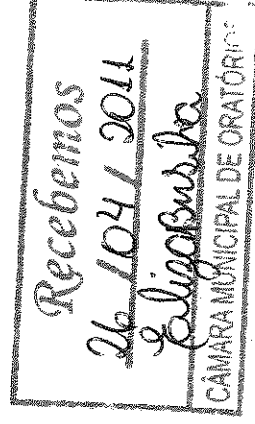 Recebemos
26 / 04 / 2011
CÂMARA MUNICIPAL DE ORATÓRIOS